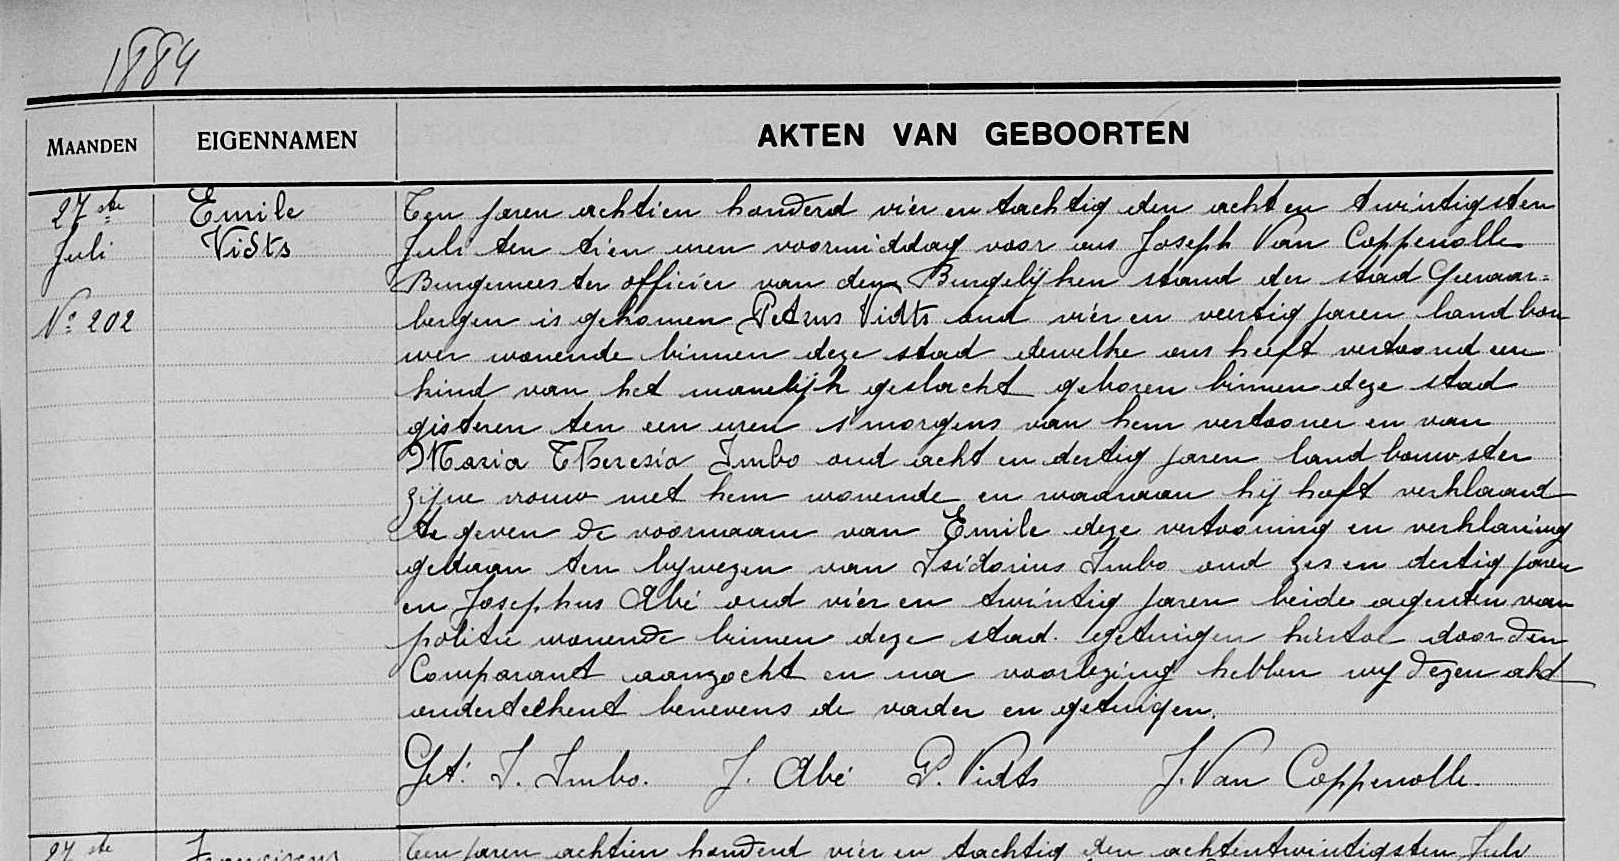 1884
MAANDEN
EIGENNAMEN
AKTEN VAN GEBOORTEN
27ste
Juli
No 202
Emile
Vidts
Ten jaren achtien honderd vier en tachtig den acht en twintigsten
Juli ten tien uren voormiddag voor ons Joseph Van Coppenolle
Burgemeester officier van den Burgelijken stand der stad Geraar=
bergen is gekomen Petrus Vidts oud vier en veertig jaren landbou
wer wonende binnen deze stad dewelke ons heeft vertoond een
kind van het manelijk geslacht geboren binnen deze stad
gisteren ten een uren s'morgens van hem vertooner en van
Maria Theresia Imbo oud acht en dertig jaren landbouwster
zijne vrouw met hem wonende en waaraan hij heeft verklaard
te geven de voornaam van Emile deze vertooning en verklaring
gedaan ten bijwezen van Isidorius Imbo oud zes en dertig jaren
en Josephus Abé oud vier en twintig jaren beide agenten van
politie wonende binnen deze stad. getuigen hiertoe door den
Comparant aanzocht en na voorlezing hebben wij dezen akt
onderteekent benevens de vader en getuigen.
Get. I. Imbo. J. Abé P. Vidts J. Van Coppenolle.
27ste
Franciscus
Ten jaren achtien honderd vier en tachtig den achtentwintigsten Juli